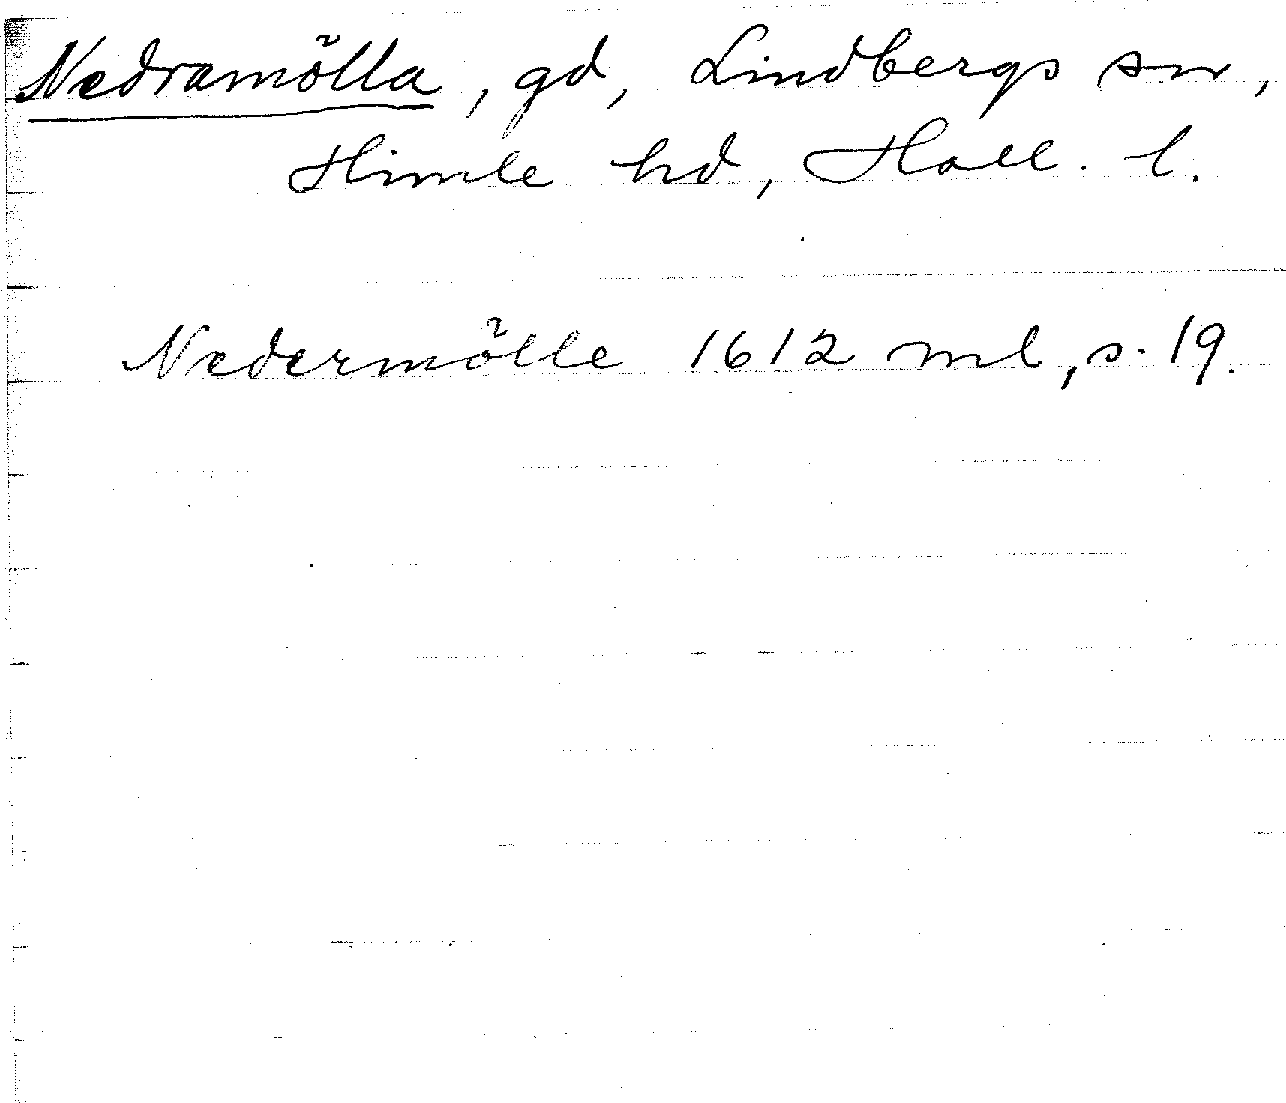 Nedramölla, gd, Lindbergs sn,
Himle hd, Hall. l.
Nedermölle 1612 ml, s. 19.